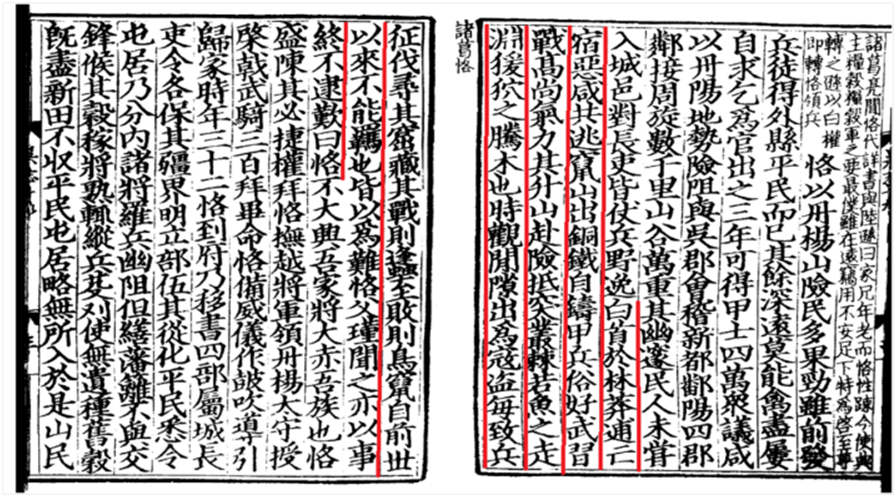 諸葛亮聞恪代詳書與陸遜曰家兄年老而恪性踈今使典
主糧穀糧穀軍之要最僕雖在遠竊用不安足下特為啓至尊
轉之遜以白權
即轉恪領兵
恪以丹楊山險民多果勁雖前發
兵徒得外縣平民而已其餘深遠莫能禽盡屢
自求乞為官出之三年可得甲士四萬衆議咸
以丹陽地勢險阻與吳郡會稽新都鄱陽四郡
鄰接周旋數千里山谷萬重其幽邃民人未甞
入城邑對長吏皆仗兵野逸白首於林莽逋亡
宿惡咸共逃竄山出銅鐵自鑄甲兵俗好武習
戰高尚氣力其升山赴險抵突叢棘若魚之走
淵猨狖之騰木也時觀間隙出為寇盜每致兵
諸葛恪
征伐尋其窟藏其戰則蠭至敗則鳥竄自前世
以來不能羈也皆以為難恪父瑾聞之亦以事
終不逮歎曰恪不大興吾家將大赤吾族也恪
盛陳其必捷權拜恪撫越將軍領丹楊太守授
棨戟武騎三百拜畢命恪備威儀作鼓吹導引
歸家時年三十二恪到府乃移書四部屬城長
吏令各保其疆界明立部伍其從化平民悉令
屯居乃分內諸將羅兵幽阻但繕藩籬不與交
鋒候其穀稼將熟輒縱兵芟刈使無遺種舊穀
旣盡新田不收平民屯居略無所入於是山民